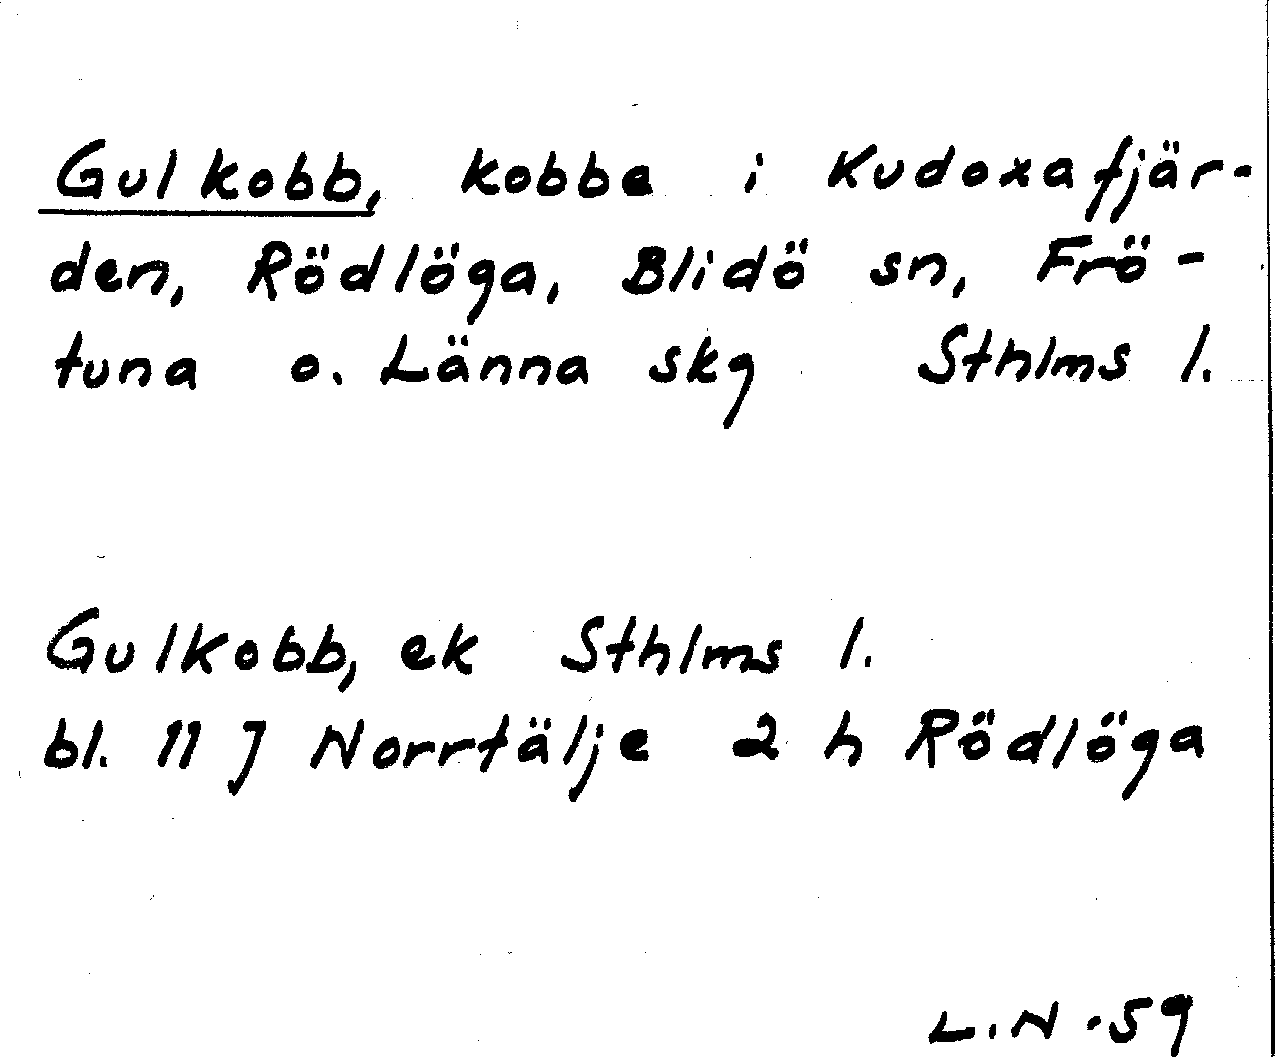 Gulkobb, kobbe i Kudoxafjär-
den, Rödlöga, Blidö sn, Frö-
tuna o. Länna skg Sthlms l.
Gulkobb, ek Sthlms l.
bl. 11 J Norrtälje 2 h Rödlöga
L.N. 59